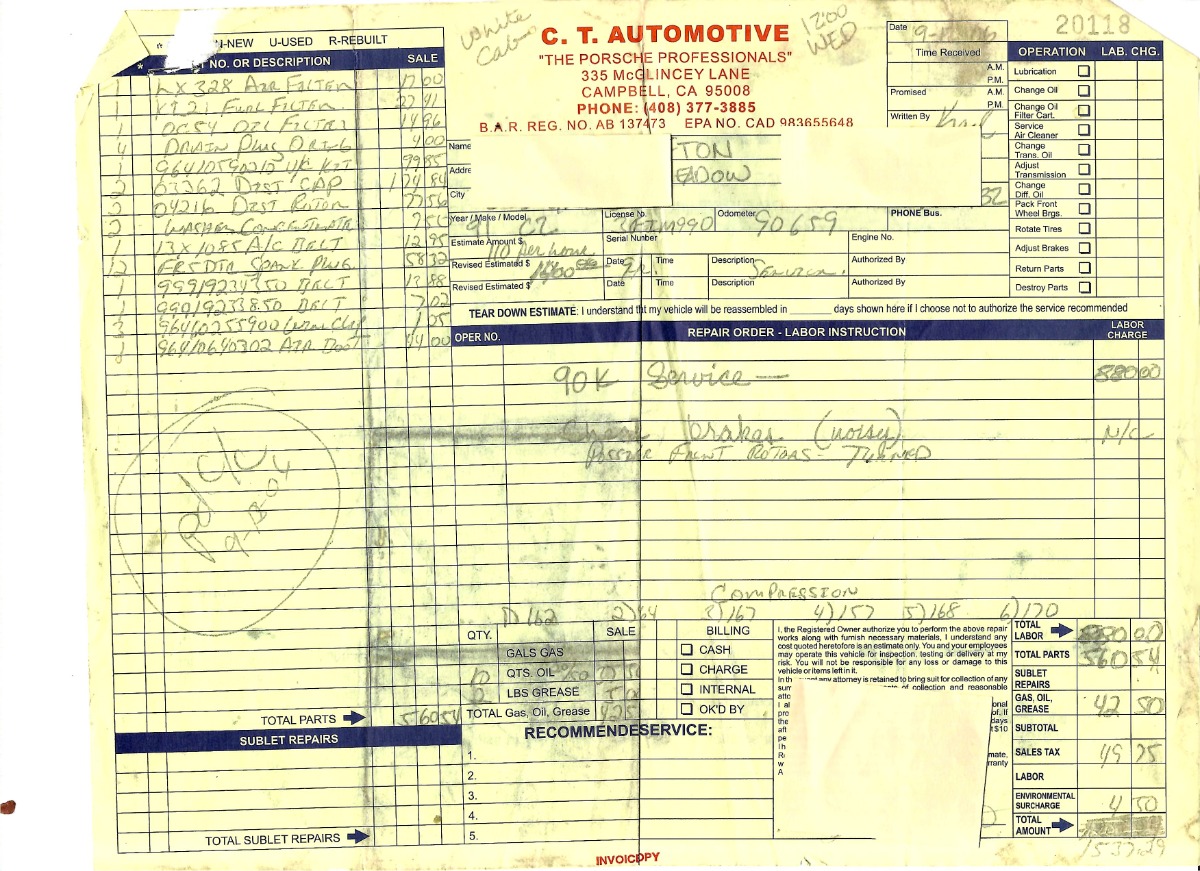 White Cab
C. T. AUTOMOTIVE
"THE PORSCHE PROFESSIONALS"
335 McGLINCEY LANE
CAMPBELL, CA 95008
PHONE: (408) 377-3885
B.A.R. REG. NO. AB 137473 EPA NO. CAD 983655648
12:00 WED
Date
Time Received
A.M.
P.M.
Promised
A.M.
P.M.
Written By
20118
OPERATION LAB. CHG.
Lubrication
Change Oil
Change Oil Filter Cart.
Service Air Cleaner
Change Trans. Oil
Adjust Transmission
Change Diff. Oil
Pack Front Wheel Brgs.
Rotate Tires
Adjust Brakes
Return Parts
Destroy Parts
N-NEW U-USED R-REBUILT
NO. OR DESCRIPTION SALE
1 LX 328 AIR FILTER 17 00
1 FUEL FILTER
1 OC54 OIL FILTER 14 96
4 DRAIN PLUG O RING 4 00
1 KIT 99 85
2 03262 DIST CAP 124 84
2 04216 DIST ROTOR
2 WASHER CONCENTRATE
1 13X1085 A/C BELT 12 95
12 SPARK PLUG 58 32
1 99919234350 BELT 13 88
1 BELT 7 02
3
1 96410640302 AIR 44 00
Name
TON
Addre
EADOW
City
Year / Make / Model
91 C2
License No.
Odometer
90659
PHONE Bus.
Estimate Amount $
110 per hour
Serial Number
Engine No.
Revised Estimated $
Date
Time
Description
Service
Authorized By
Revised Estimated $
Date
Time
Description
Authorized By
TEAR DOWN ESTIMATE: I understand tht my vehicle will be reassembled in ______ days shown here if I choose not to authorize the service recommended
OPER NO. REPAIR ORDER - LABOR INSTRUCTION LABOR CHARGE
90K Service — 880 00
Check brakes (noisy) N/C
FRONT ROTORS - TURNED
Pd ck
COMPRESSION
1) 162 2) 164 3) 167 4) 157 5) 168 6) 170
QTY. SALE
GALS GAS
QTS. OIL
LBS GREASE
TOTAL Gas, Oil, Grease
BILLING
CASH
CHARGE
INTERNAL
OK'D BY
I, the Registered Owner authorize you to perform the above repair
works along with furnish necessary materials, I understand any
cost quoted heretofore is an estimate only. You and your employees
may operate this vehicle for inspection, testing or delivery at my
risk. You will not be responsible for any loss or damage to this
vehicle or items left in it.
any attorney is retained to bring suit for collection of any
of collection and reasonable
TOTAL LABOR 880 00
TOTAL PARTS 560 54
SUBLET REPAIRS
GAS, OIL, GREASE 42 50
SUBTOTAL
SALES TAX 49 75
LABOR
ENVIRONMENTAL SURCHARGE 4 50
TOTAL AMOUNT
1537.29
TOTAL PARTS 560 54
SUBLET REPAIRS
TOTAL SUBLET REPAIRS
RECOMMENDESERVICE:
1.
2.
3.
4.
5.
INVOICOPY